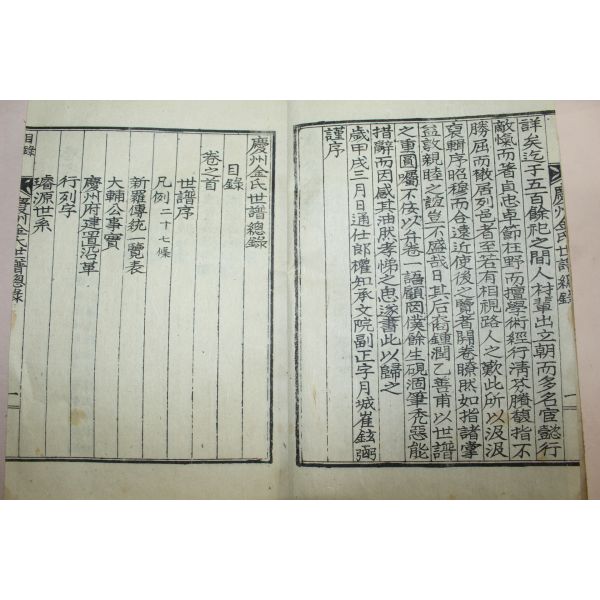 詳矣迄于五百餘祀之間人材輩出立朝而多名宦懿行
敵愾而著貞忠卓節在野而擅學術經行淸芬騰馥指不
勝屈而散居列邑者至若有相視路人之歎此所以汲汲
裒輯序昭穆而合遠近使後之覽者開卷瞭然如指諸掌
益敦親睦之誼豈不盛哉日其后裔鍾潤乙善甫以世譜
之重圓囑不佞以弁卷一語顧因僕餘生硯涸筆禿惡能
措辭而因感其油然孝悌之思遂書此以歸之
歲甲戌三月日通仕郎權知承文院副正字月城崔鉉弼
謹序
慶州金氏世譜總錄
一
慶州金氏世譜總錄
目錄
卷之首
世譜序
凡例二十七條
新羅傳統一覽表
大輔公事實
慶州府建置沿革
行列字
璿源世系
目錄
慶州金氏世譜總錄
一